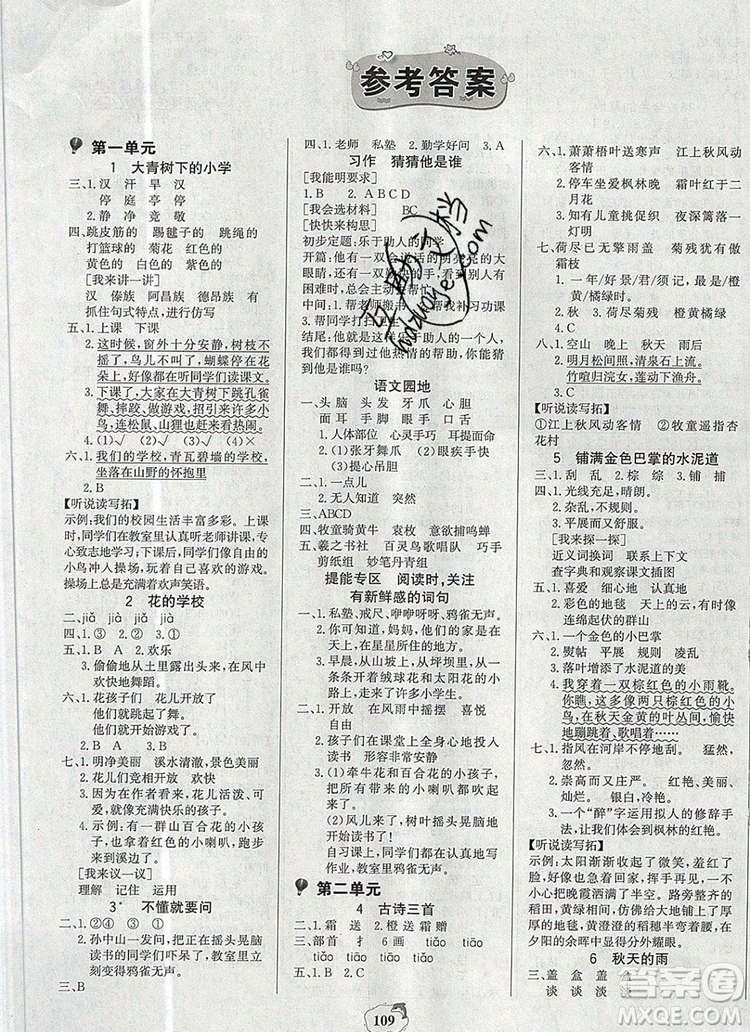 参考答案
第一单元
1 大青树下的小学
三、1. 汉 汗 旱 汉
停 庭 亭 停
2. 静 净 竞 敬
四、跳皮筋的 踢毽子的 跳绳的
打篮球的 菊花 红色的
黄色的 白色的 紫色的
[我来讲一讲]
汉 傣族 阿昌族 德昂族 有
抓住句式特点，进行仿写
五、1. 上课 下课
2. 这时候，窗外十分安静，树枝不
摇了，鸟儿不叫了，蝴蝶停在花
朵上，好像都在听同学们读课文。
3. 下课了，大家在大青树下跳孔雀
舞、摔跤、做游戏，招引来许多小
鸟，连松鼠、山狸也赶来看热闹。
4. (1)√ (2)√ (3)√
六、1. 我们的学校，青瓦碧墙的学校，
坐落在山野的怀抱里
2. B
【听说读写拓】
示例:我们的校园生活丰富多彩。上课
时，同学们在教室里认真听老师讲课，专
心致志地学习;下课后，同学们像自由的
小鸟冲入操场，玩着自己喜欢的游戏。
操场上总是充满着欢声笑语。
2 花的学校
二、jiǎ jià jià jiǎ
四、① ③ ① ②
五、1. B 2. 欢乐
3. 偷偷地从土里露出头来，在风中
欢快地摇摆
六、1. 花孩子们 花儿开放了
他们就跳起了舞。
他们就开始了游戏。
2. B A 3. B
七、1. 明净美丽 溪水清澈，景色美丽
2. 花儿们竞相开放 欢快
3. 因为作者把山花、石缝里的花都
当成快活快乐的孩子。
4. 示例:有一群山百合花的小孩
子，吹着小喇叭，蹦蹦跳跳地，跑
来到溪边了。
[我来议一议]
理解 记住 运用
3* 不懂就要问
一、1. ②④ 2. ③ 3. ①
二、2. 孙中山一发问，把同学们吓呆
了，课堂里变得鸦雀无声。
三、B
四、1. 老师 私塾 2. 勤学好问 3. A
习作 猜猜他是谁
[我能明要求]
1. B 2. ABCD
[我会选材料] BC
[快快来构思]
初步定题:乐于助人的同学
开篇:他有一双会说话的明亮亮的大
眼睛，还有一双勤快的手，看到别人有
困难时，总会主动去帮忙。
中间:1. 帮老师搬书 2. 帮我补习功课
3. 帮同学打扫卫生
结尾:他就是乐于助人的一个人，
我们都得到过他热情的帮助，你能猜到
他是谁吗?
语文园地
一、头脑 头发 牙爪 心胆
面耳 手脚 眼手 口舌
1. 人体部位 心灵手巧 耳聪目明
2. (1)张牙舞爪 (2)眼疾手快
(3)提心吊胆
二、1. 一点儿
2. 无人知道 突然
三、ABCD
四、牧童骑黄牛 袁枚 意欲捕鸣蝉
五、羲之书社 百灵鸟歌唱队 巧手
剪纸组 妙笔丹青组
提能专区 阅读时，关注
有新鲜感的词句
一、1. 私塾、戒尺、咿咿呀呀、鸦雀无声。
2. 你可知道，妈妈，他们的家是在
天上，在星星所住的地方。
3. 早晨，从山坡上，从坪坝里，从一
条条开着绒球花和太阳花的小
路上，走来了许多小学生。
二、1. 开放 在风中摇摆 喜悦
自由
2. 孩子们在课堂上全身心地投入
读书 形容非常安静
3. (1)牵牛花和百合花的小孩子，
吹着欢快的小喇叭都不
作声了!
(2)风儿来了，树叶摇头晃脑地
开始读书了!
自习课上，同学们认真地写
作业，教室里鸦雀无声。
第二单元
4 古诗三首
二、1. 霜 送 2. 橙 送 霜 赠
三、部首 扌 6画 tiāo tiǎo
tiāo tiǎo tiāo tiǎo
五、1. B 2. C
六、1. 萧萧梧叶送寒声 江上秋风动
客情
2. 停车坐爱枫林晚 霜叶红于二
月花
3. 知有儿童挑促织 夜深篱落一
灯明
七、荷尽已无擎雨盖 菊残犹有傲
霜枝
1. 一年/好景/君/须记，最是/橙
黄/橘绿时。
2. 荷尽菊残 橙黄橘绿 3. B
4. C
八、1. 空山 晚上 秋天 雨后
2. 明月松间照，清泉石上流。
竹喧归浣女，莲动下渔舟。
3. C
【听说读写拓】
①江上秋风动客情 ②牧童遥指杏
花村
5 铺满金色巴掌的水泥道
三、1. 刮 乱 2. 棕 综 3. 铺 捕
四、1. 光线充足，晴朗。
2. 杂乱，不规则。
3. 平展而又舒服。
[我来探一探]
近义词换词 联系上下文
查字典和观察课文插图
五、1. 喜爱 细心地 认真地
2. 彩色的地毯 五颜六色的云朵
连绵起伏的群山
六、1. 一个金色的小巴掌
2. 熨帖 平展 规则 凌乱
3. 落叶增添了水泥道的美
4. 我穿着一双棕红色的小雨靴。
你瞧，这多像两只棕红色的小
鸟，在秋天金黄的叶丛间，愉快
地蹦跳着、歌唱着……
七、1. 指风在河岸不停地刮。 猛然，
忽然。
2. 崇高而又庄严。 火红、艳红、
灿烂。 银白，枯黄。
3. 一个“醉”字运用拟人的修辞手
法，让我们体会到枫林的红艳。
【听说读写拓】
示例:太阳渐渐收起了微笑，羞红了
脸，几片云霞飘过来。路旁旁熟透的
稻田，黄绿相间，仿佛给大地铺上了
彩色的地毯。那片高粱地、稻田，在
夕阳的余晖中分外耀眼。
6 秋天的雨
三、盖 盒 盒 盖
谈 谈 淡 淡
109
答案圈
MXQE.COM